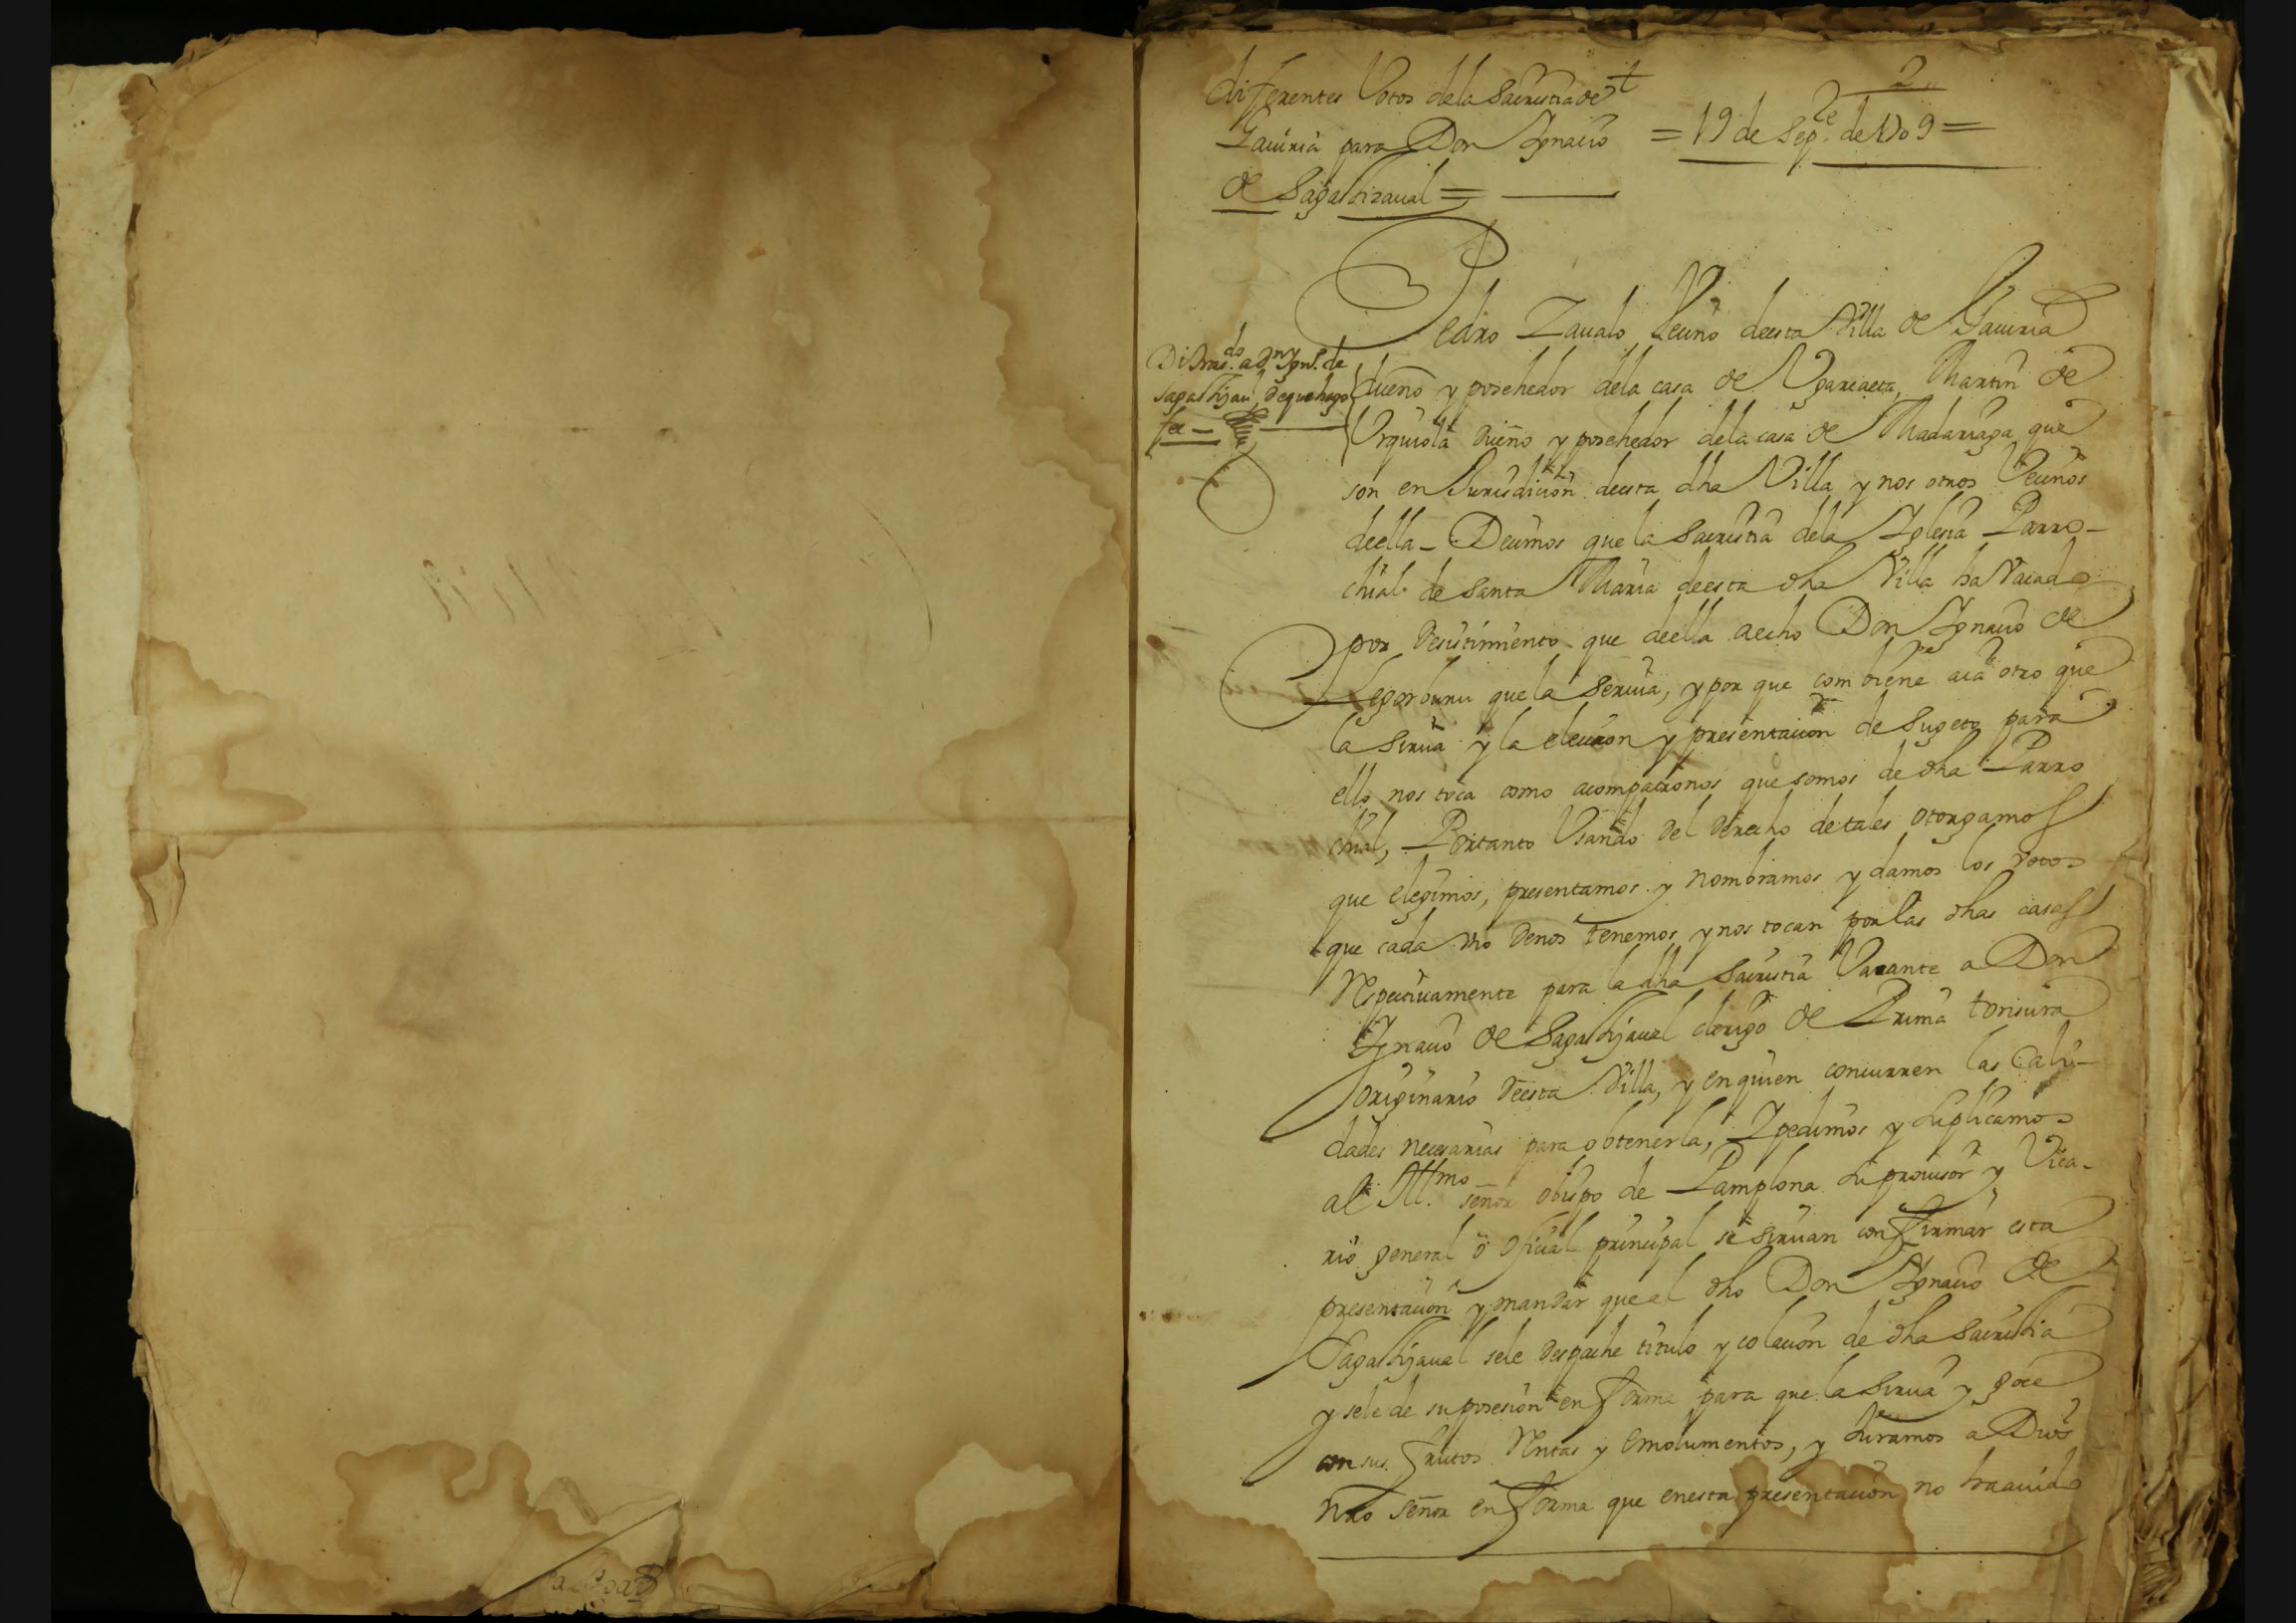 2
diferentes Votos dela Sacristia de
Gaviria para Don Ignacio = 19 de Sepe. de 1709 =
de Sagastizaval =
Pedro Zavalo Vecino deesta Villa de Gaviria
Di tras.do a Dn Ign.o de
sagastizau.l de que hago
fee =
dueño y posehedor dela casa de Ugarcaeta, Martin de
Urquiola dueño y posehedor dela casa de Madariaga que
son en Jurisdicion deesta dha Villa y nos otros Vecinos
deella - Decimos que la Sacristia dela Iglesia Parro-
chial de Santa Maria deesta dha Villa ha Vacado
por desistimiento que deella aecho Don Ignacio de
Legorburu que la Servia, y por que combiene aia otro que
la Sirva y la eleccion y presentacion de Sugeto para
ello nos toca como acompatronos que somos de dha Parro
chial, Portanto Usando del derecho de tales otorgamos
que elegimos, presentamos y nombramos y damos los votos
que cada vno denos tenemos y nos tocan por las dhas casas
Respectivamente para la dha Sacristia Vacante a Don
Ignacio de Sagastizaval clerigo de Prima tonsura
Originario deesta Villa, y en quien concurren las Cali-
dades necesarias para obtenerla, Y pedimos y suplicamos
al Ill.mo señor Obispo de Pamplona su provisor y Vica-
rio general o Oficial principal se sirvan confirmar esta
presentacion y mandar que al dho Don Ignacio de
Sagastizaval sele despache titulo y colacion de dha Sacristia
y sele de su posesion en forma para que la Sirva y goce
con sus frutos Rentas y Emolumentos, y Juramos a Dios
nro Señor en forma que enesta presentacion no haavido